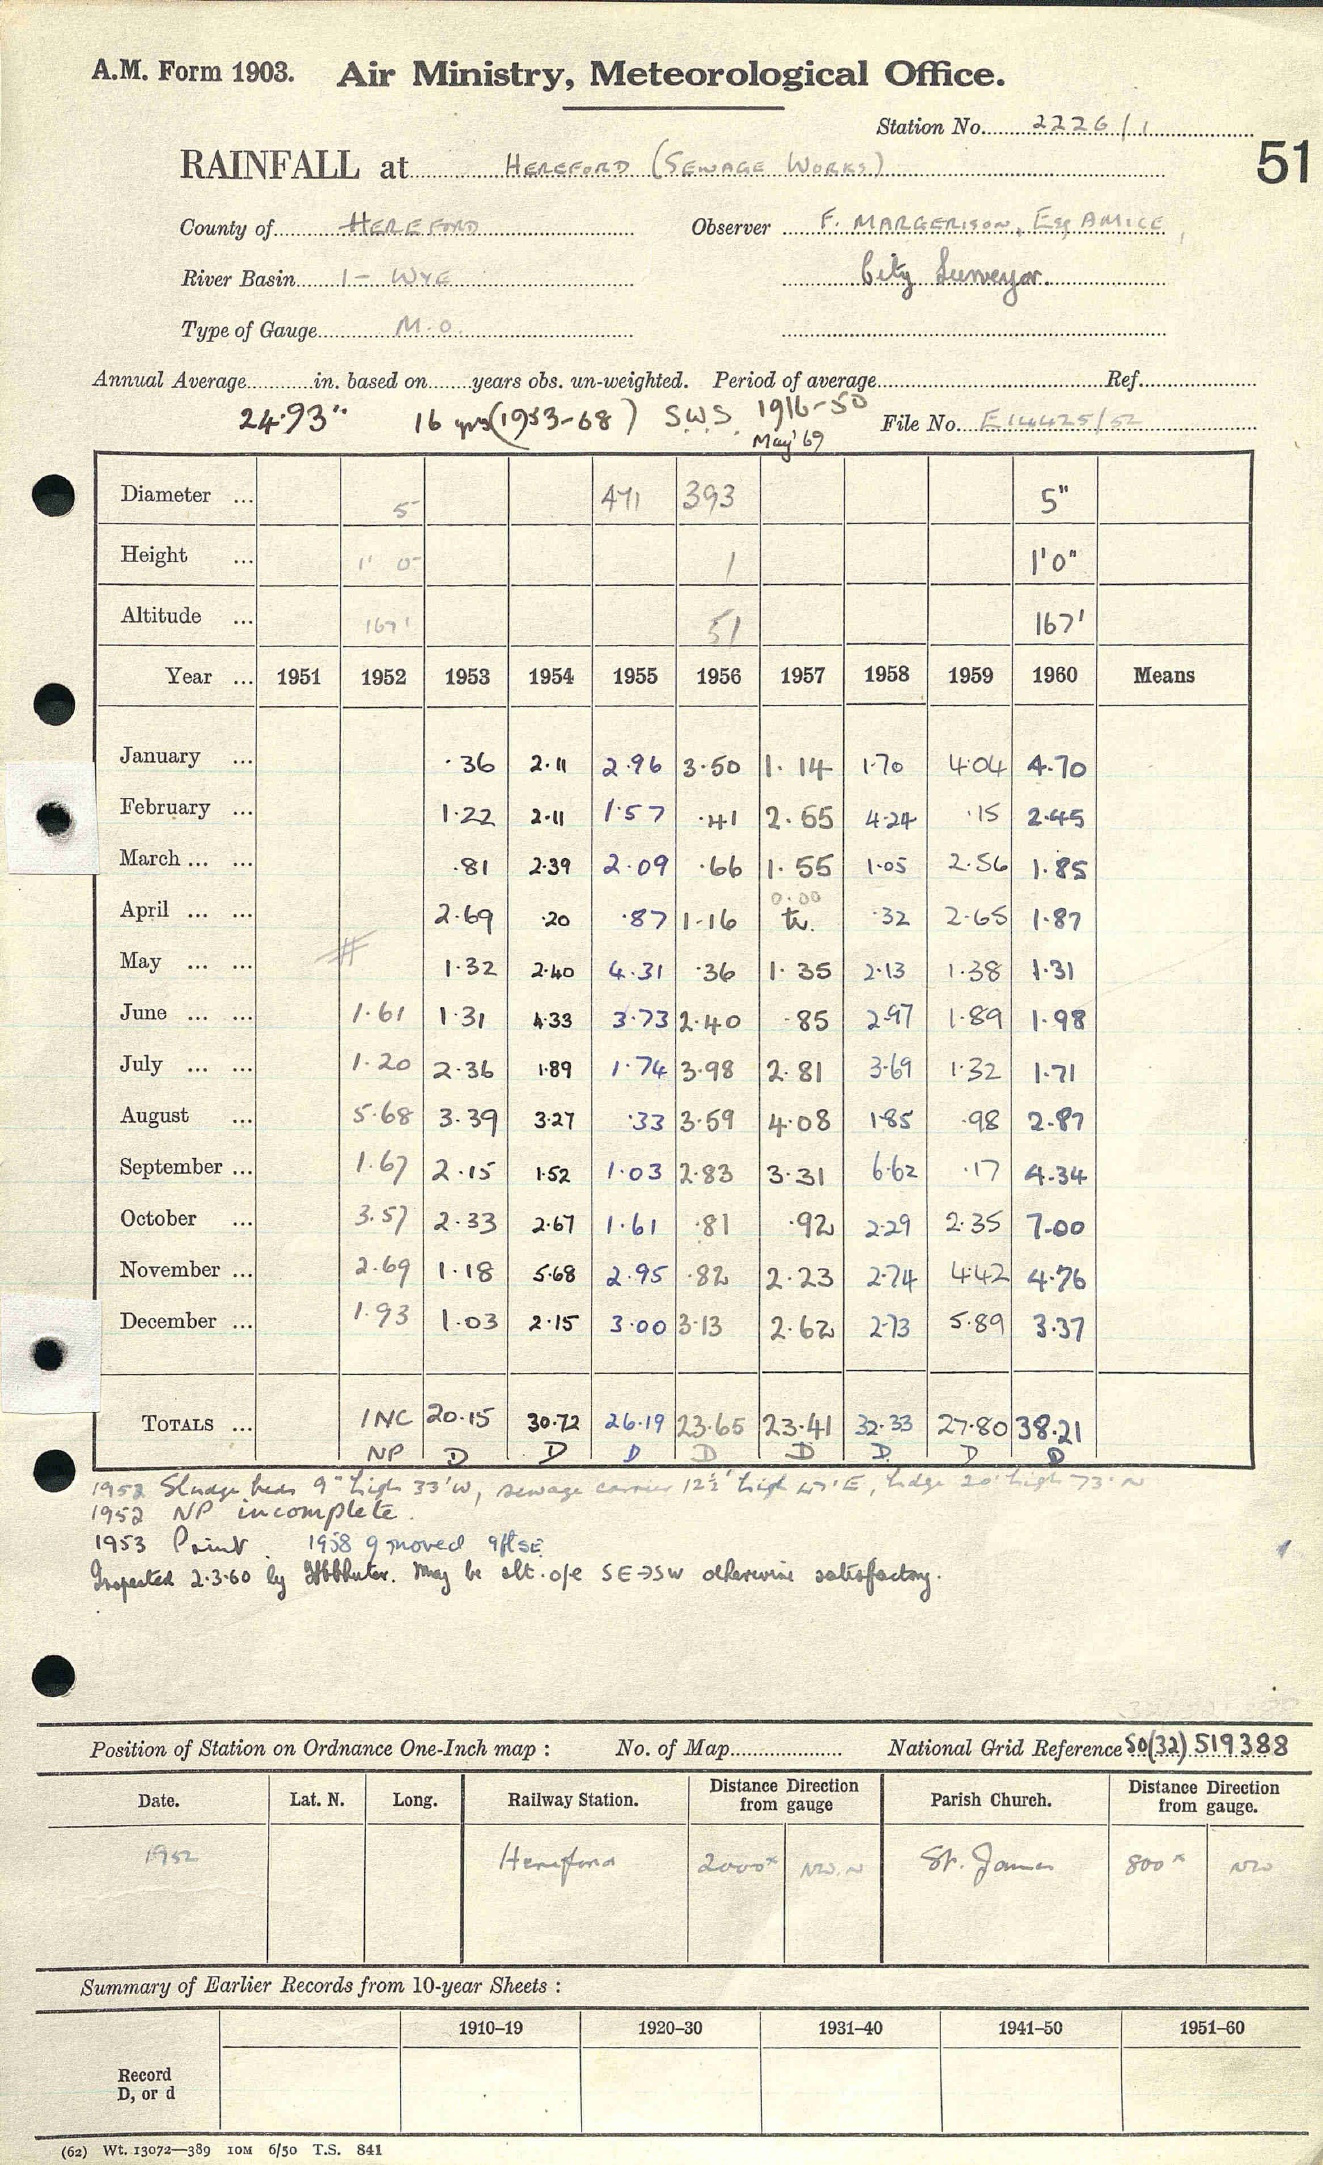 A.M. Form 1903. Air Ministry, Meteorological Office.
Station No. 2226/1
51
RAINFALL at HEREFORD (SEWAGE WORKS)
County of HEREFORD Observer F. MARGERISON, Esq AMICE,
River Basin 1 - WYE City Surveyor.
Type of Gauge M.O.
Annual Average in. based on years obs. un-weighted. Period of average Ref.
24.93" 16 yrs (1953-68) S.W.S. 1916-50 File No. E14425/52
May '69
Diameter ... 5 471 393 5"
Height ... 1' 0" 1 1'0"
Altitude ... 167' 51 167'
Year ... 1951 1952 1953 1954 1955 1956 1957 1958 1959 1960 Means
January ... .36 2.11 2.96 3.50 1.14 1.70 4.04 4.70
February ... 1.22 2.11 1.57 .41 2.65 4.24 .15 2.45
March ... ... .81 2.39 2.09 .66 1.55 1.05 2.56 1.85
0.00
April ... ... 2.69 .20 .87 1.16 tr. .32 2.65 1.87
May ... ... 1.32 2.40 4.31 .36 1.35 2.13 1.38 1.31
June ... ... 1.61 1.31 4.33 3.73 2.40 .85 2.97 1.89 1.98
July ... ... 1.20 2.36 1.89 1.74 3.98 2.81 3.69 1.32 1.71
August ... 5.68 3.39 3.27 .33 3.59 4.08 1.85 .98 2.87
September ... 1.67 2.15 1.52 1.03 2.83 3.31 6.62 .17 4.34
October ... 3.57 2.33 2.67 1.61 .81 .92 2.29 2.35 7.00
November ... 2.69 1.18 5.68 2.95 .82 2.23 2.74 4.42 4.76
December ... 1.93 1.03 2.15 3.00 3.13 2.62 2.73 5.89 3.37
TOTALS ... INC 20.15 30.72 26.19 23.65 23.41 32.33 27.80 38.21
NP D D D D D D D D
1952 Sludge beds 9" high 33' W, sewage carrier 12½' high 47' E, hedge 20' high 73' N
1952 NP incomplete.
1953 Print. 1958 g moved 9ft SE.
Inspected 2.3.60 by May be slt. o/e SE→SW otherwise satisfactory.
Position of Station on Ordnance One-Inch map : No. of Map National Grid Reference SO(32) 519388
Date. Lat. N. Long. Railway Station. Distance Direction from gauge Parish Church. Distance Direction from gauge.
1952 Hereford 2000x NW.N St. James 800x NW
Summary of Earlier Records from 10-year Sheets :
1910–19 1920–30 1931–40 1941–50 1951–60
Record
D, or d
(62) Wt. 13072—389 10M 6/50 T.S. 841